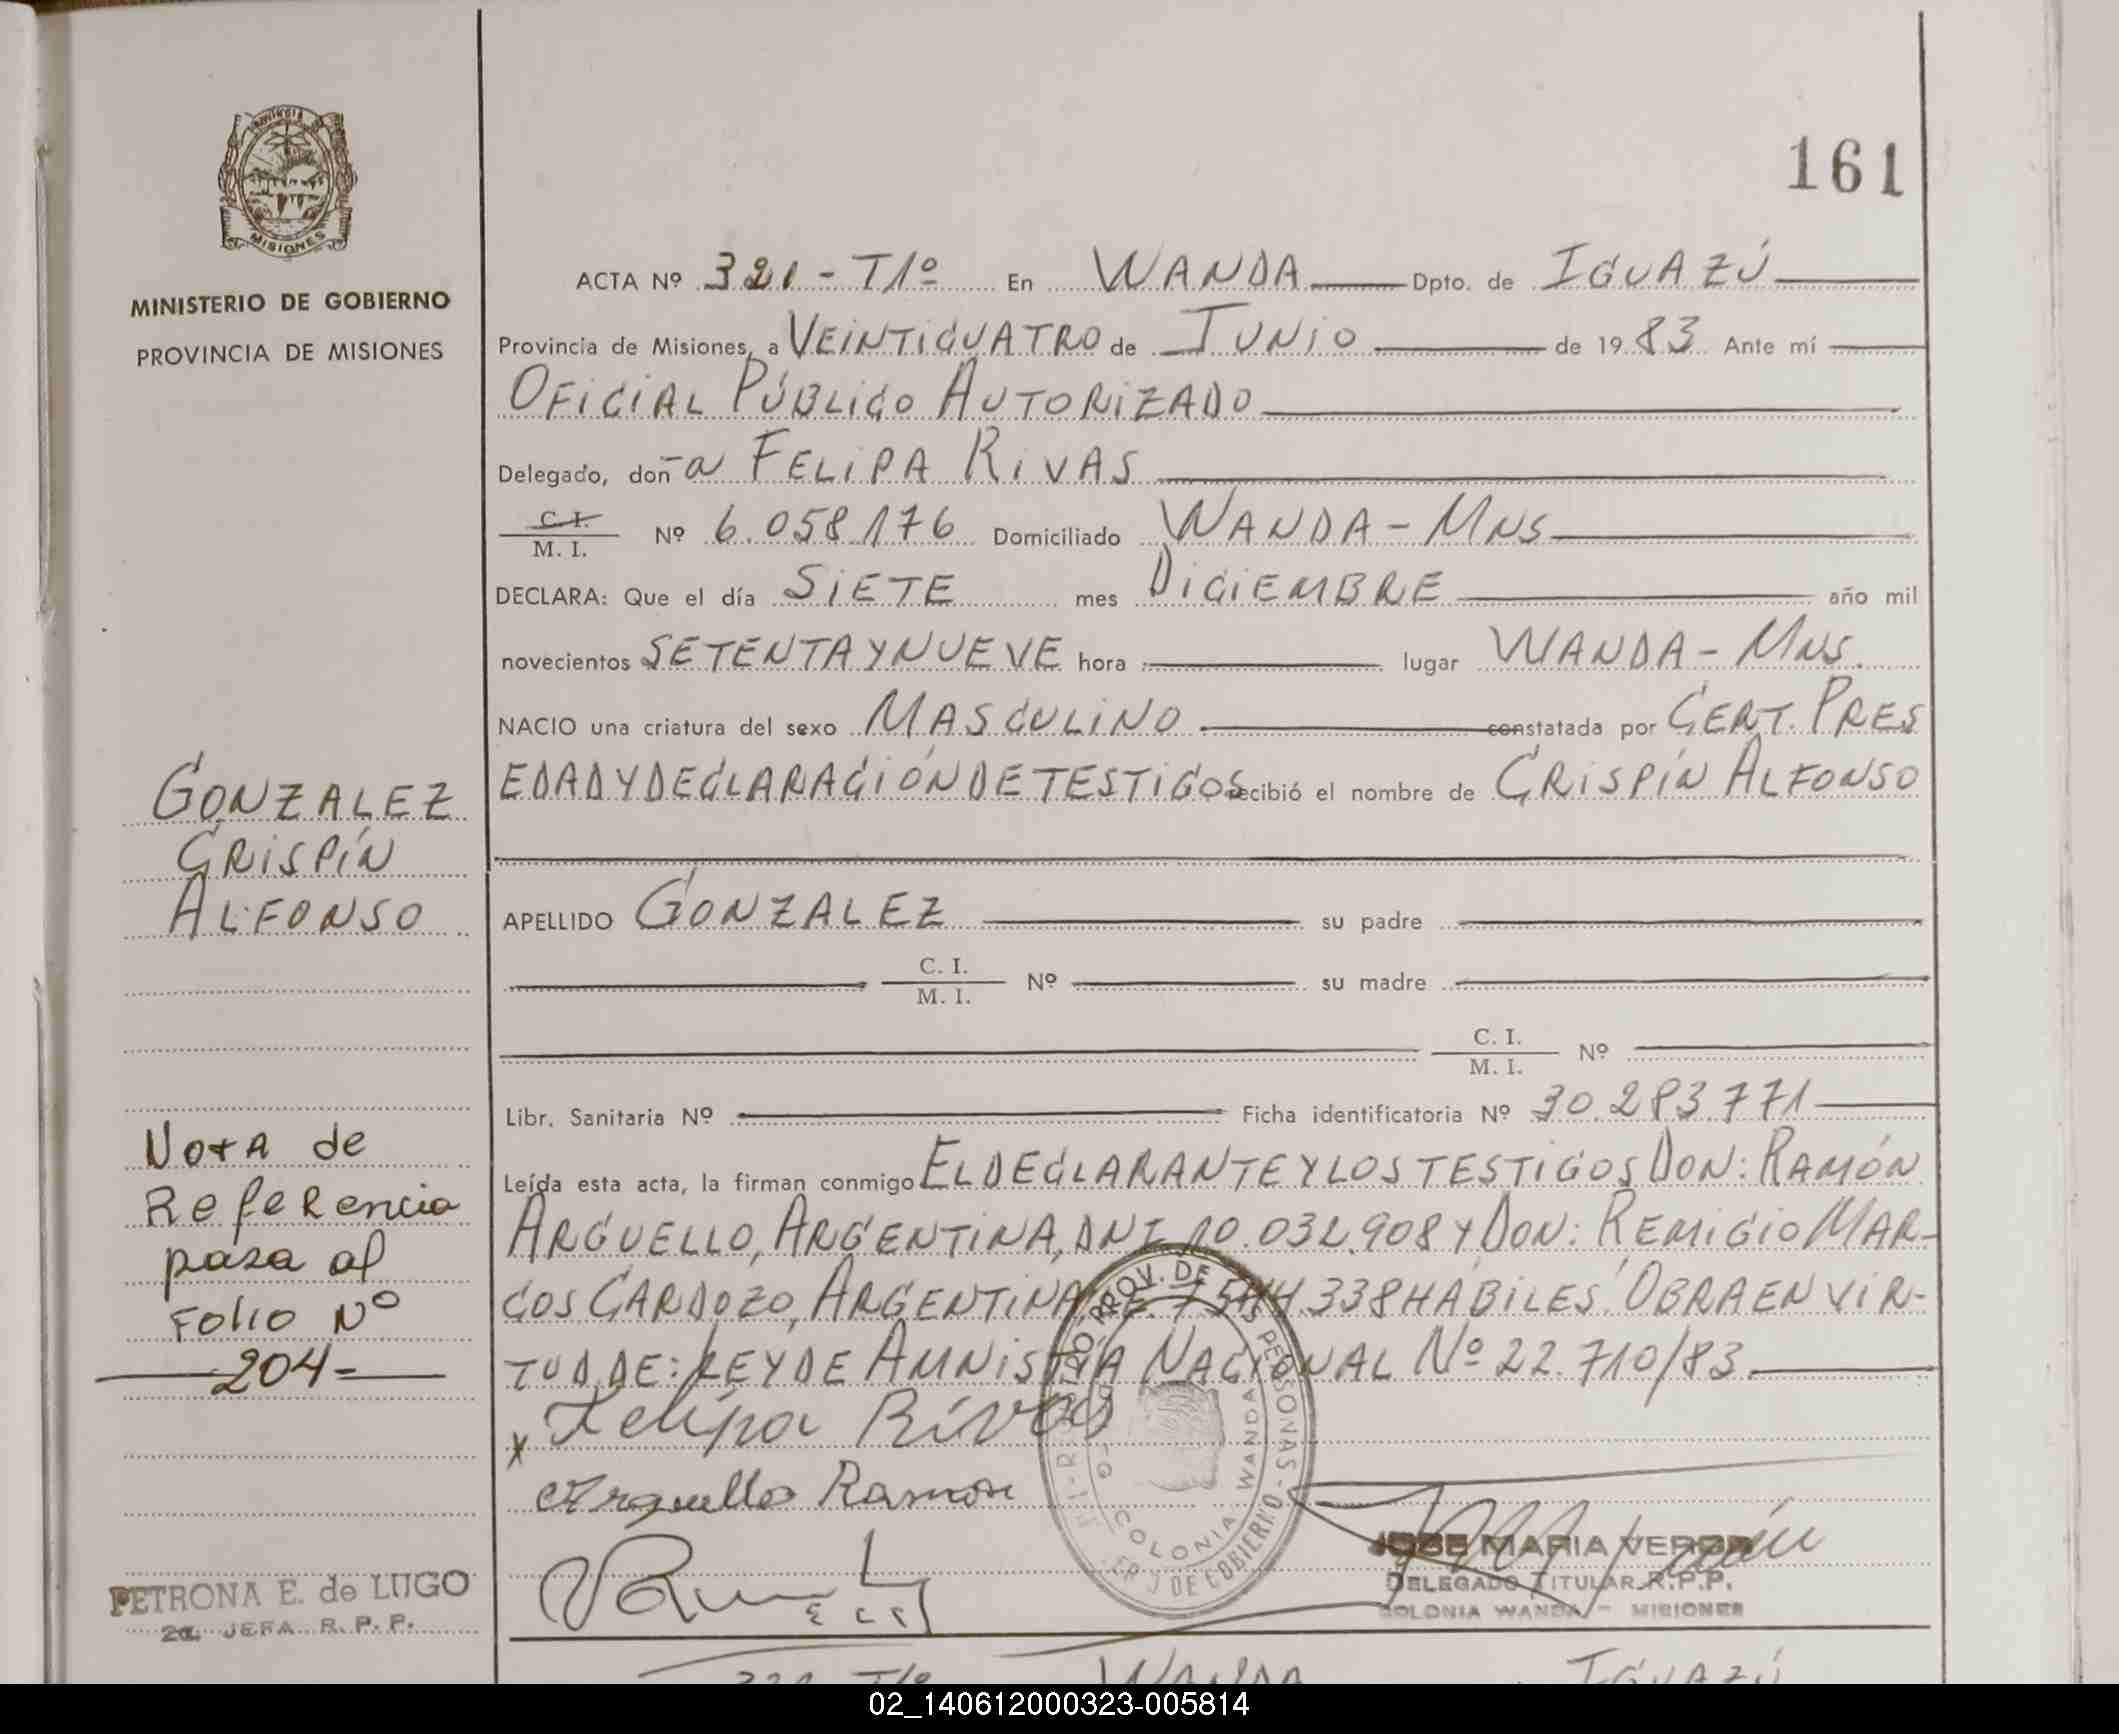 161
PROVINCIA DE MISIONES
MINISTERIO DE GOBIERNO
PROVINCIA DE MISIONES
ACTA Nº 321 - T1º En WANDA Dpto. de IGUAZÚ
Provincia de Misiones, a VEINTICUATRO de JUNIO de 1983 Ante mí
OFICIAL PÚBLICO AUTORIZADO
Delegado, doña FELIPA RIVAS
C. I.
M. I. Nº 6.058.176 Domiciliado WANDA - MNS
DECLARA: Que el día SIETE mes DICIEMBRE año mil
novecientos SETENTA Y NUEVE hora lugar WANDA - MNS.
NACIO una criatura del sexo MASCULINO constatada por CERT. PRES
EDAD Y DECLARACIÓN DE TESTIGOS recibió el nombre de CRISPÍN ALFONSO
APELLIDO GONZALEZ su padre
C. I.
M. I. Nº su madre
C. I.
M. I. Nº
Libr. Sanitaria Nº Ficha identificatoria Nº 30.283.771
Leída esta acta, la firman conmigo EL DECLARANTE Y LOS TESTIGOS DON: RAMÓN
ARGUELLO, ARGENTINA, DNI 10.032.908 Y DON: REMIGIO MAR-
COS CARDOZO, ARGENTINA, 7.544.338 HÁBILES. OBRA EN VIR-
TUD DE: LEY DE AMNISTÍA NACIONAL Nº 22.710/83
x Felipa Rivas
Arguello Ramon
GONZALEZ
CRISPÍN
ALFONSO
Nota de
Referencia
pasa al
Folio Nº
204-
PETRONA E. de LUGO
2a. JEFA R. P. P.
REGISTRO PROV. DE LAS PERSONAS
COLONIA WANDA
DE GOBIERNO
JOSE MARIA
DELEGADO TITULAR R.P.P.
COLONIA WANDA - MISIONES
WANDA IGUAZÚ
02_140612000323-005814